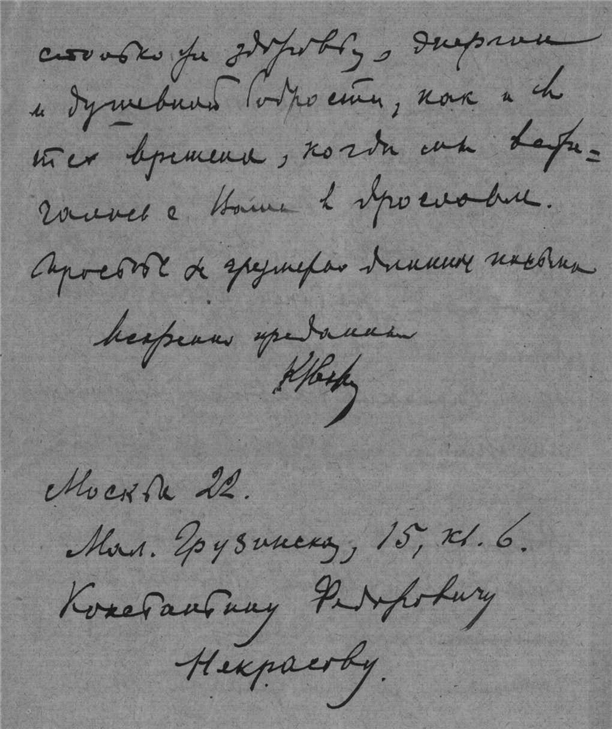 столько же здоровья, энергии
и душевной бодрости, как и в
те времена, когда мы встре=
чались с Вами в Ярославле.
Простите за чрезмерно длинное письмо
Искренно преданный
Москва 22.
Мал. Грузинская, 15, кв. 6.
Константину Федоровичу
Некрасову.